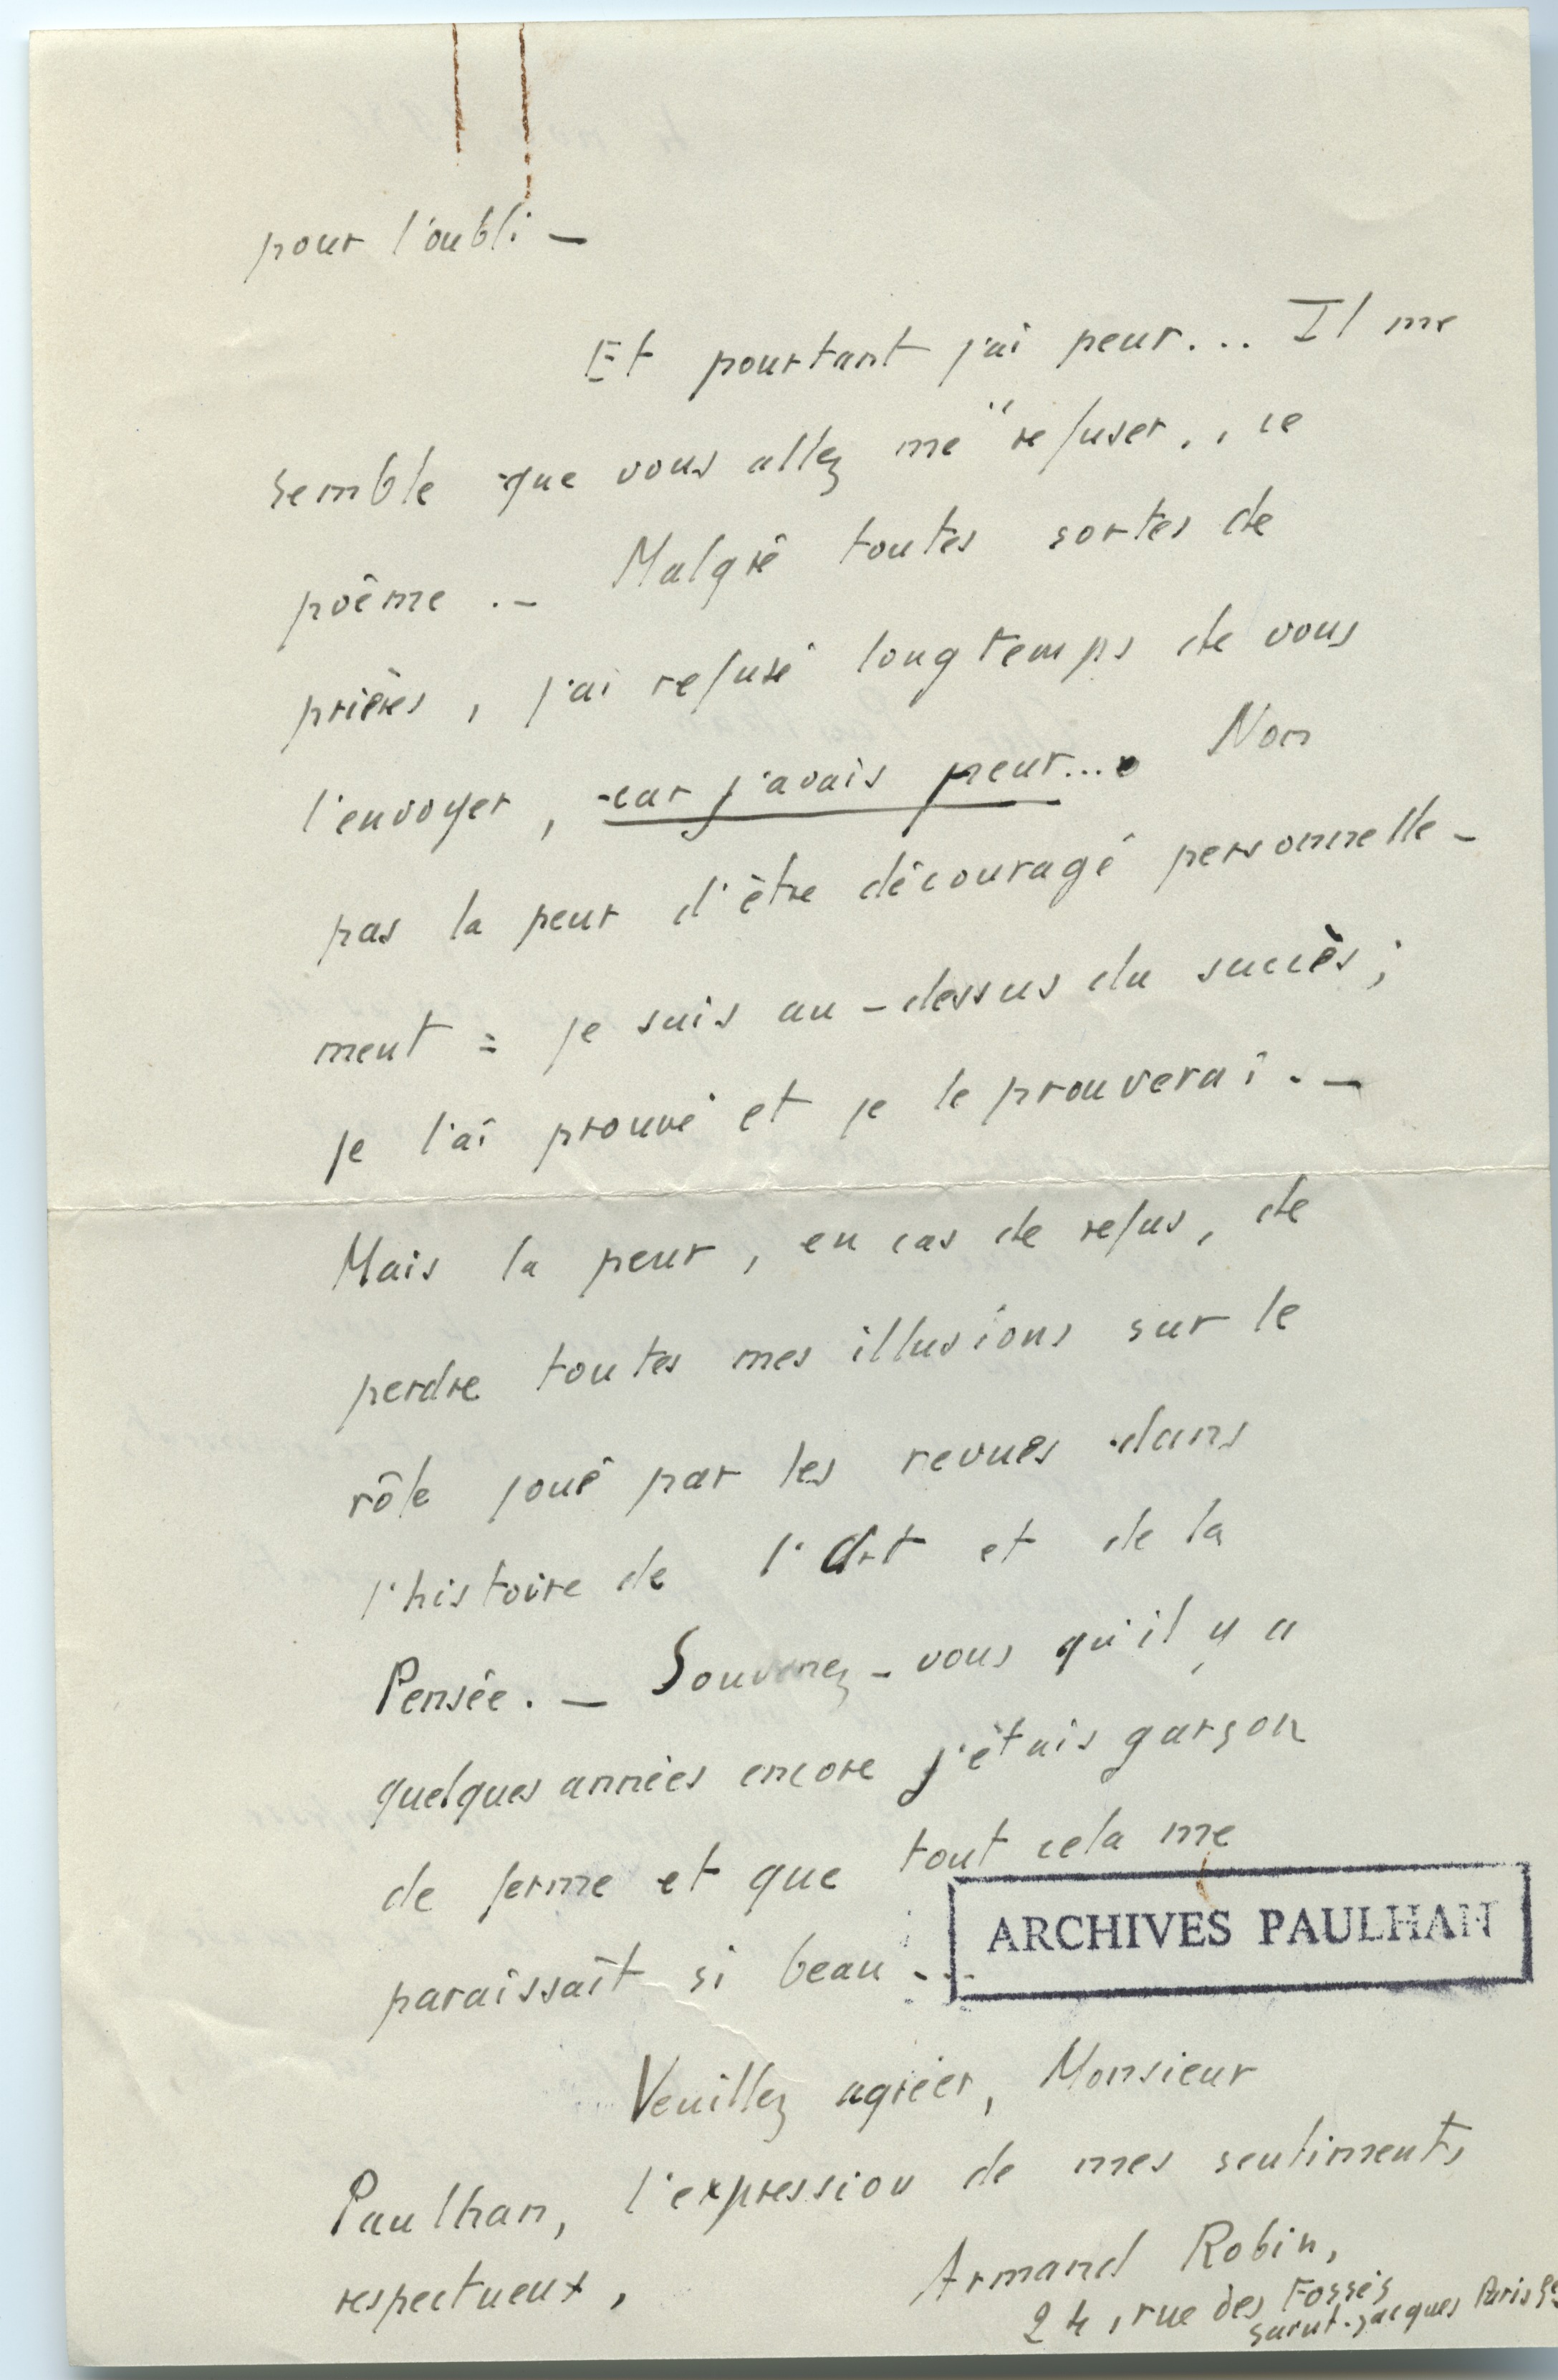 pour l'oubli —
Et pourtant j'ai peur... Il me
semble que vous allez me "refuser,, ce
poême . —  Malgré toutes sortes de
prières, j'ai refusé longtemps de vous
l'envoyer, car j'avais peur.... Non
pas la peur d'être découragé personnelle-
ment : je suis au-dessus du succès ;
je l'ai prouvé et je le prouverai . —
Mais la peur, en cas de refus, de
perdre toutes mes illusions sur le
rôle joué par les revues dans
l'histoire de l'Art et de la
Pensée. — Souvenez-vous qu'il y a
quelques années encore j'étais garçon
de ferme et que tout cela me
paraissait si beau ...
ARCHIVES PAULHAN
Veuillez agréer, Monsieur
Paulhan, l'expression de mes sentiments
respectueux,
Armand Robin,
24, rue des Fossés
Saint-Jacques Paris 5e